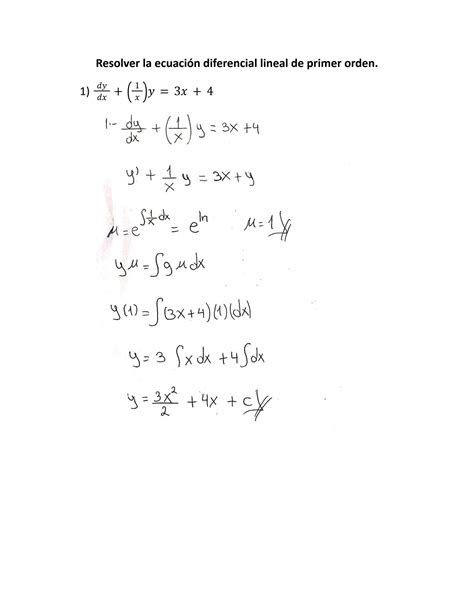 Resolver la ecuación diferencial lineal de primer orden.
1) dy/dx + (1/x)y = 3x + 4
1.- dy/dx + (1/x) y = 3x +4
y' + 1/x y = 3x + y
μ = e^∫1/x dx = e^ln μ = 1
y μ = ∫g μ dx
y(1) = ∫(3x+4)(1)(dx)
y = 3 ∫x dx + 4∫dx
y = 3x²/2 + 4x + c